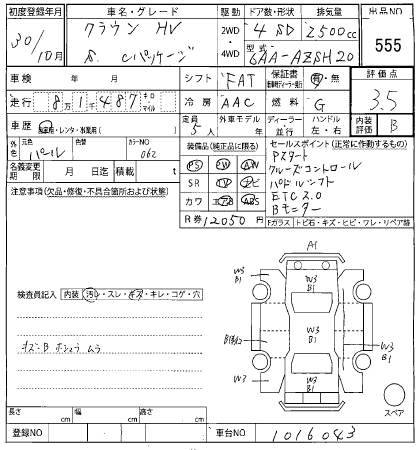 初度登録年月 車名・グレード 駆動 ドア数・形状 排気量 出品NO
30/10月 クラウン HV 2WD 4 SD 2500cc 555
S. Cパッケージ 4WD 型式 6AA-AZSH20
車検 年 月 シフト FAT 保証書 有・無 評価点
走行 8万1千487 キロ マイル 冷房 AAC 燃料 G 3.5
車歴 自家用・レンタ・事業用( ) 定員 5人 外車モデル 年 ディーラー 並行 ハンドル 左・右 内装評価 B
外色 元色 パール 色替 カラーNO 062 装備品(純正品に限る) セールスポイント(正常に作動するもの)
名義変更期限 月 日迄 積載 t PS PW AW Pスタート
注意事項(欠品・修復・不具合箇所および状態) SR TV ナビ クルーズコントロール
カワ エアB ABS パドルシフト
ETC 2.0
Bモニター
R券 12050 円 Fガラス トビ石・キズ・ヒビ・ワレ・リペア跡
A1
W3 B1 W3 B1
検査員記入 内装 汚レ・スレ・キズ・キレ・コゲ・穴
W3 B1 W3 B1
W3 W3 B1
スペア
長さ cm 幅 cm 高さ cm
登録NO 車台NO 1016043